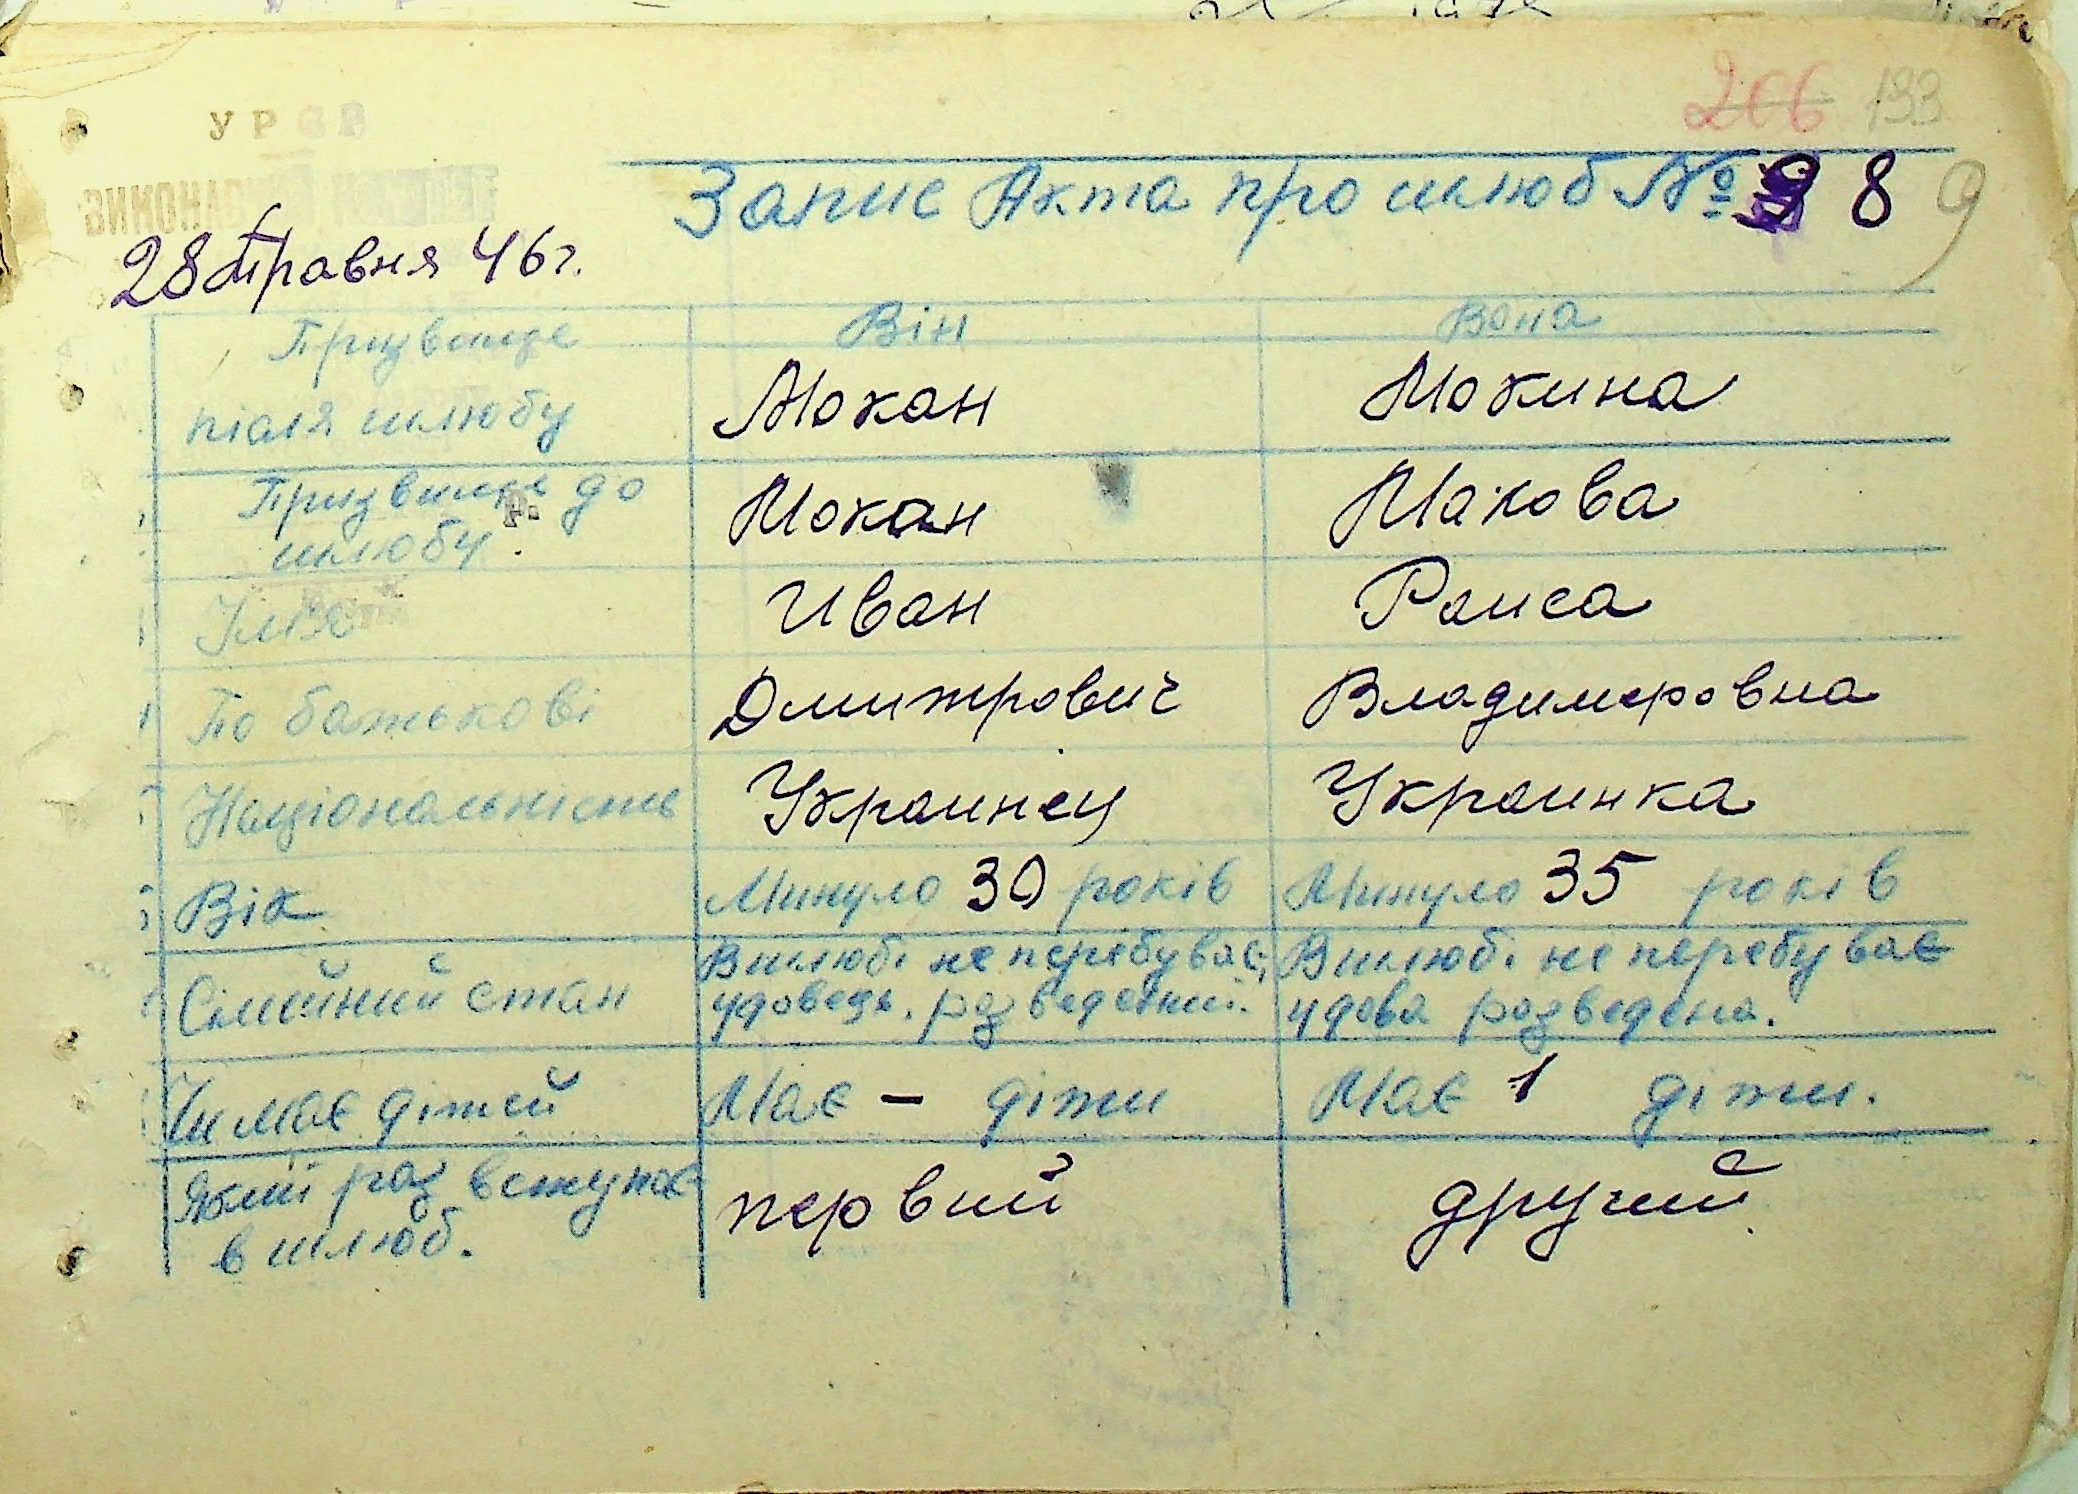 206 193
УРСР
Запис Акта про шлюб № 8 9
28 травня 46 г.
Він Вона
Призвище
після шлюбу Мокан Мокина
Призвище до
шлюбу Мокан Макова
Імя Иван Раиса
По батькові Дмитрович Владимировна
Національність Украинец Украинка
Вік Минуло 30 років Минуло 35 років
Сімейний стан В шлюбі не перебуває, В шлюбі не перебуває
удовець, разведений. удова разведена.
Чи має дітей Має - діти Має 1 діти.
Який раз вступає
в шлюб. первий другий